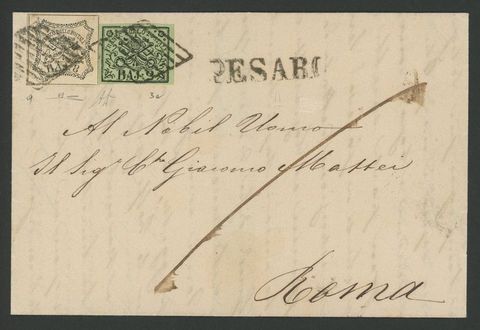 BAJ. 8
BAJ. 2
PESARO
9
3a
Al Nobil Uomo
Il Sigr Cte Giacomo Mattei
Roma